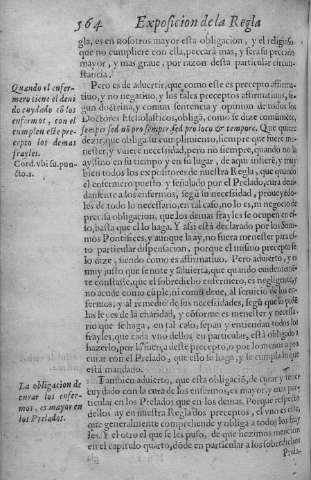 364 Exposicion de la Regla
gla, es en nosotros mayor esta obligacion, y el religioso
que no cumpliere con ella, peccarà mas, y serà su peccado
mayor, y mas graue, por razon desta particular circun-
stancia.
Quando el enfer-
mero tiene el deui
do cuydado cõ los
enfermos, con el
cumplen este pre-
cepto los demas
frayles.
Cord. vbi su. pun-
Pero es de aduertir, que como este es precepto affirma-
tiuo, y no negatiuo, y los tales preceptos affirmatiuos,
gun doctrina, y comun sentencia y opinion de todos los
Doctores Escholasticos, obligã, como se dize comũmẽte,
semper sed nõ pro semper sed pro loco & tempore. Que quiere
dezir, que obliga su cumplimiento, siempre que fuere me-
nester, y vuiere necessidad, pero no siempre, quando no la
ay, sino en su tiempo y en su lugar, de aqui infierẽ, y muy
bien todos los expositores de nuestra Regla, que quando
el enfermero puesto y señalado por el Prelado, cura deui-
damente a los enfermos, segũ su necessidad, proueyẽdo-
les de todo lo necessario, en tal caso, no lo es, ni negocio de
precisa obligacion, que los demas frayles se ocupen en el-
lo, basta que el lo haga. Y assi està declarado por los Sum-
mos Pontifices, y aunque la ay, no fuera menester parti-
cular dispensacion, porque el mismo precepto se
lo dize, siendo como es affirmatiuo. Pero aduierto, y es
muy justo que se note y se aduierta, que quando euidentemẽ-
te constasse, que el sobredicho enfermero, es negligente, y
no acude como cũple, ni consideme, al seruicio de los en-
fermos, y al remedio de sus necessidades, segũ que lo pidẽ
las leyes de la charidad, y cõforme es menester y necessa-
rio que se haga, en tal caso, sepan y entiendan todos los
frayles, que cada vno dellos en particular, està obligado a
hazerlo, por la fuerça deste precepto, o por lo menos a pro
curar con el Prelado, que esso se haga, y se cumpla lo que
està mandado.
La obligacion de
curar los enfer-
mos, es mayor en
los Prelados.
Tambien aduierto, que esta obligaciõ, de curar y tener
cuydado con la cura de los enfermos, es mayor, y mas par-
ticular en los Prelados que en los demas. Porque respecto
dellos ay en nuestra Regla dos preceptos, el vno es este,
que generalmente comprehende y obliga a todos los fray
les. Y el otro el que se les puso, de que hezimos mencion
en el capitulo quarto, dõde en particular a los sobredichos
Prela-